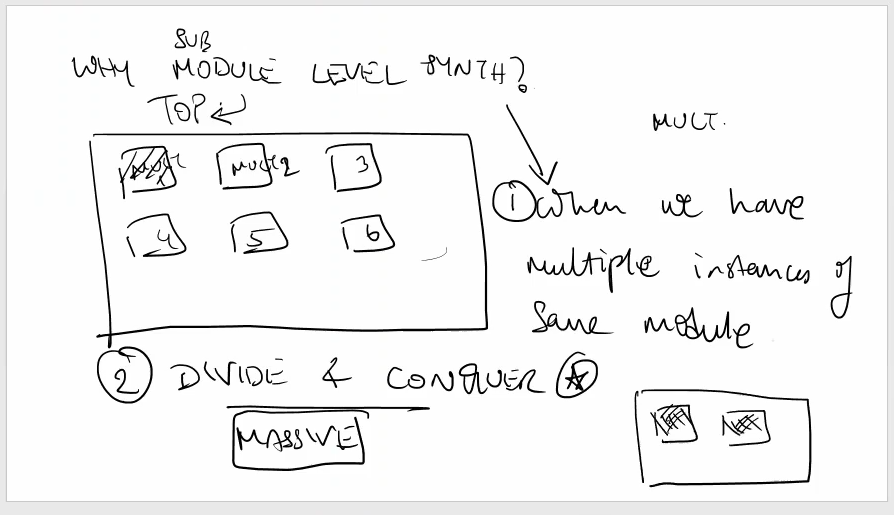 SUB
WHY MODULE LEVEL SYNTH?
TOP
MULT.
MULT2 3
4 5 6
1 When we have
multiple instances of
same module
2 DIVIDE & CONQUER
MASSIVE